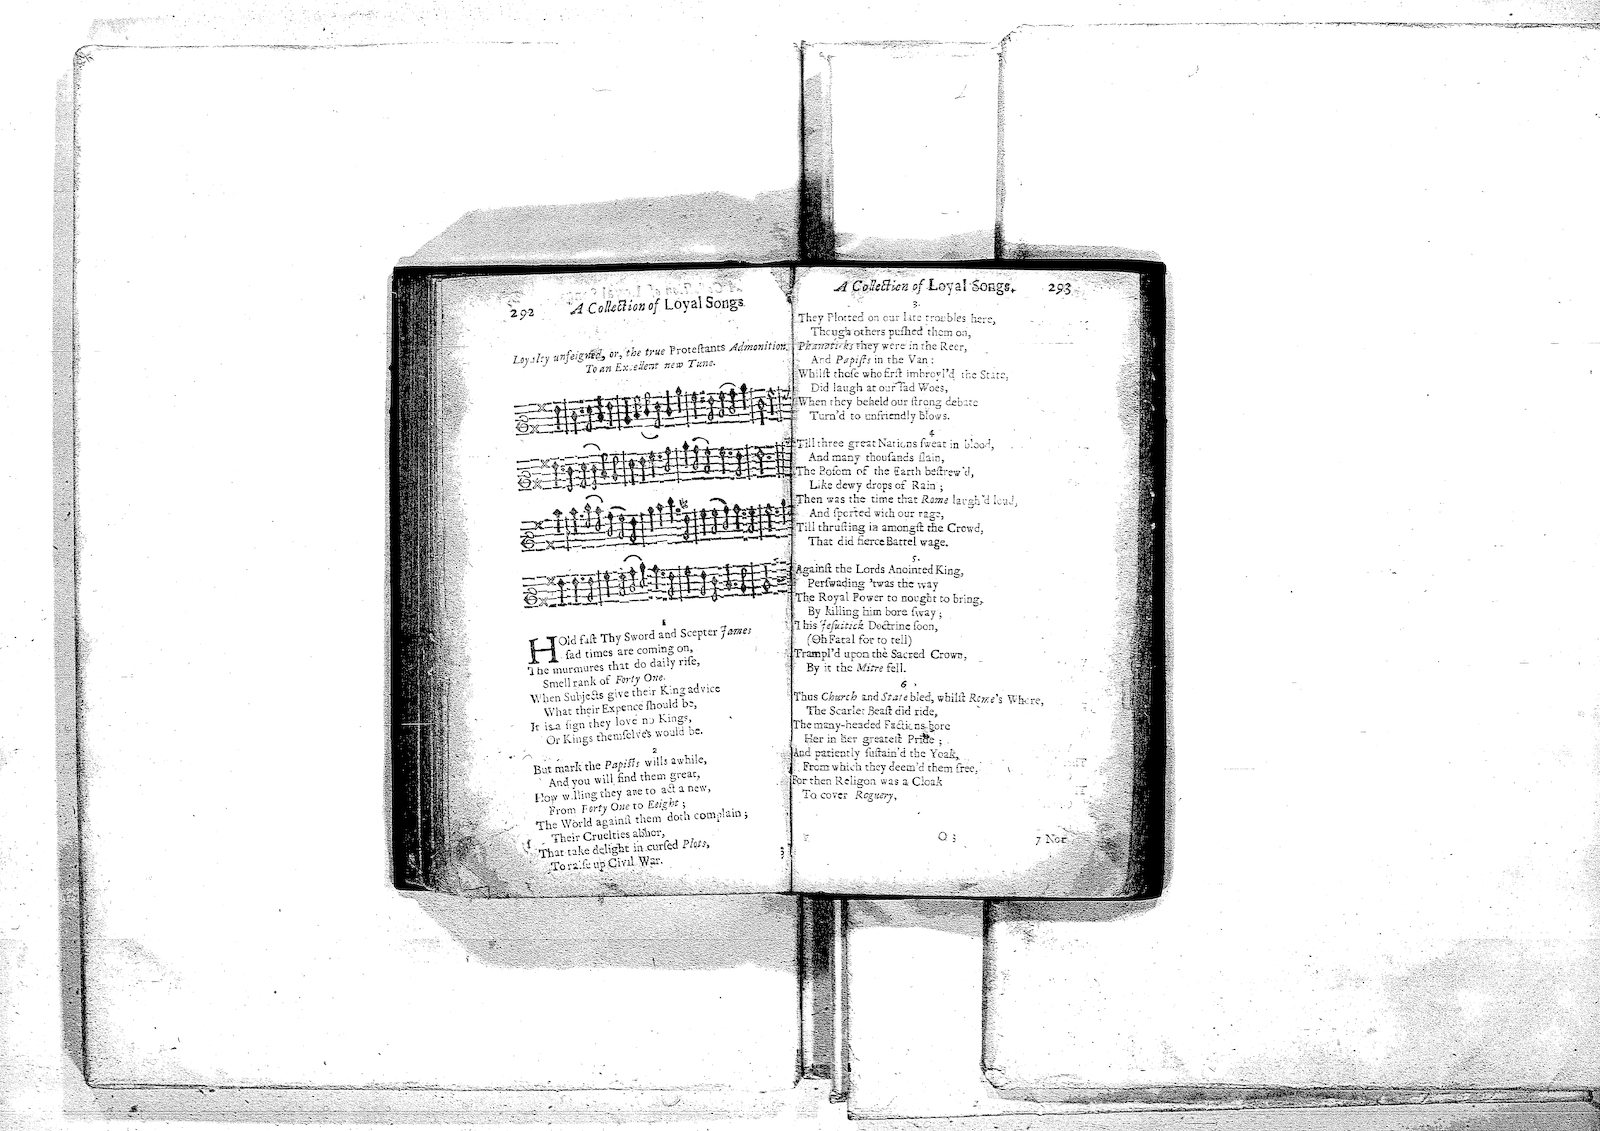 292 A Collection of Loyal Songs.
Loyalty unfeigned, or, the true Proteſtants Admonition.
To an Excellent new Tune.
1
HOld faſt Thy Sword and Scepter James
ſad times are coming on,
The murmures that do daily riſe,
Smell rank of Forty One.
When Subjects give their King advice
What their Expence ſhould be,
It is a ſign they love no Kings,
Or Kings themſelves would be.
2
But mark the Papiſts wills awhile,
And you will find them great,
How willing they are to act a new,
From Forty One to Eeight;
The World againſt them doth complain;
Their Cruelties abhor,
That take delight in curſed Plots,
To raiſe up Civil War.
3
A Collection of Loyal Songs. 293
3.
They Plotted on our late troubles here,
Though others puſhed them on,
Phanaticks they were in the Reer,
And Papiſts in the Van:
Whilſt thoſe who firſt imbroyl'd the State,
Did laugh at our ſad Woes,
When they beheld our ſtrong debate
Turn'd to unfriendly blows.
4
Till three great Nations ſweat in blood,
And many thouſands ſlain,
The Boſom of the Earth beſtrew'd,
Like dewy drops of Rain;
Then was the time that Rome laugh'd loud,
And ſported with our rage,
Till thruſting in amongſt the Crowd,
That did fierce Battel wage.
5.
Againſt the Lords Anointed King,
Perſwading 'twas the way
The Royal Power to nought to bring,
By killing him bore ſway;
This Jeſuitick Doctrine ſoon,
(Oh Fatal for to tell)
Trampl'd upon the Sacred Crown,
By it the Mitre fell.
6.
Thus Church and State bled, whilſt Rome's Whore,
The Scarlet Beaſt did ride,
The many-headed Factions bore
Her in her greateſt Pride;
And patiently ſuſtain'd the Yoak,
From which they deem'd them free,
For then Religon was a Cloak
To cover Roguery,
O 3 7 Nor